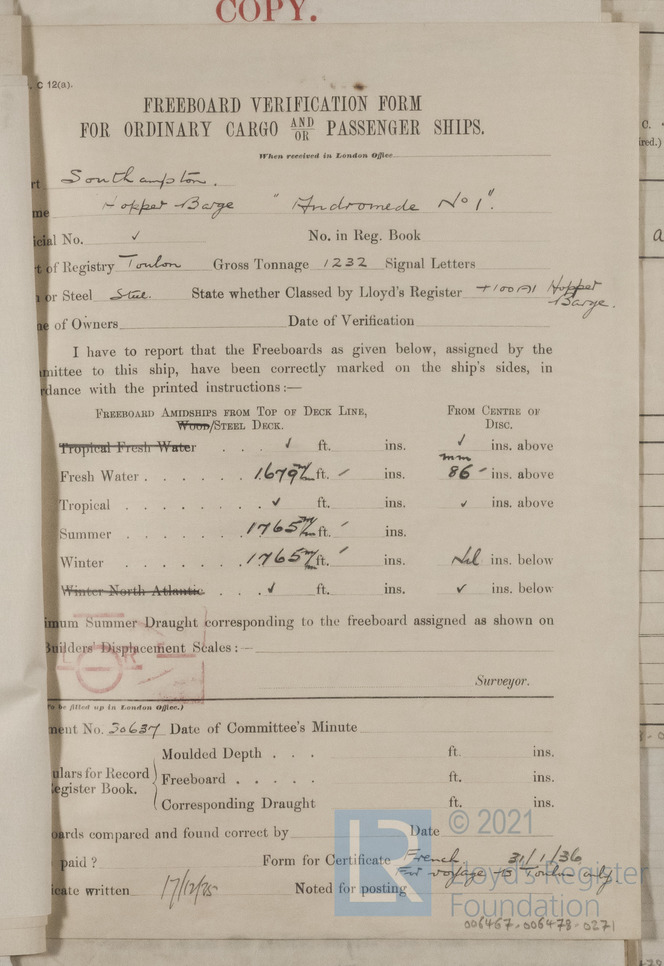 COPY.
C 12(a).
FREEBOARD VERIFICATION FORM
FOR ORDINARY CARGO AND OR PASSENGER SHIPS.
When received in London Office
rt Southampton.
me Hopper Barge "Andromede No 1".
icial No. ✓ No. in Reg. Book
t of Registry Toulon Gross Tonnage 1232 Signal Letters
or Steel Steel. State whether Classed by Lloyd's Register +100A1 Hopper Barge.
e of Owners Date of Verification
I have to report that the Freeboards as given below, assigned by the
mittee to this ship, have been correctly marked on the ship's sides, in
rdance with the printed instructions:—
FREEBOARD AMIDSHIPS FROM TOP OF DECK LINE, FROM CENTRE OF
WOOD/STEEL DECK. DISC.
Tropical Fresh Water . . . ✓ ft. ins. ✓ ins. above
Fresh Water . . . . . . 1679 m/m ft. ins. 86 mm ins. above
Tropical . . . . . . . ✓ ft. ins. ✓ ins. above
Summer . . . . . . . 1765 m/m ft. ins.
Winter . . . . . . . 1765 m/m ft. ins. Nil ins. below
Winter North Atlantic . . . ✓ ft. ins. ✓ ins. below
imum Summer Draught corresponding to the freeboard assigned as shown on
Builders' Displacement Scales:—
L R
Surveyor.
To be filled up in London Office.)
ment No. 30637 Date of Committee's Minute
Moulded Depth . . . ft. ins.
ulars for Record
Freeboard . . . . . ft. ins.
egister Book.
Corresponding Draught ft. ins.
oards compared and found correct by Date
paid? Form for Certificate French 31/1/36
For voyage to Toulon only
icate written 17/12/35 Noted for posting
© 2021
LR
Lloyd's Register
Foundation
006467-006478-0271